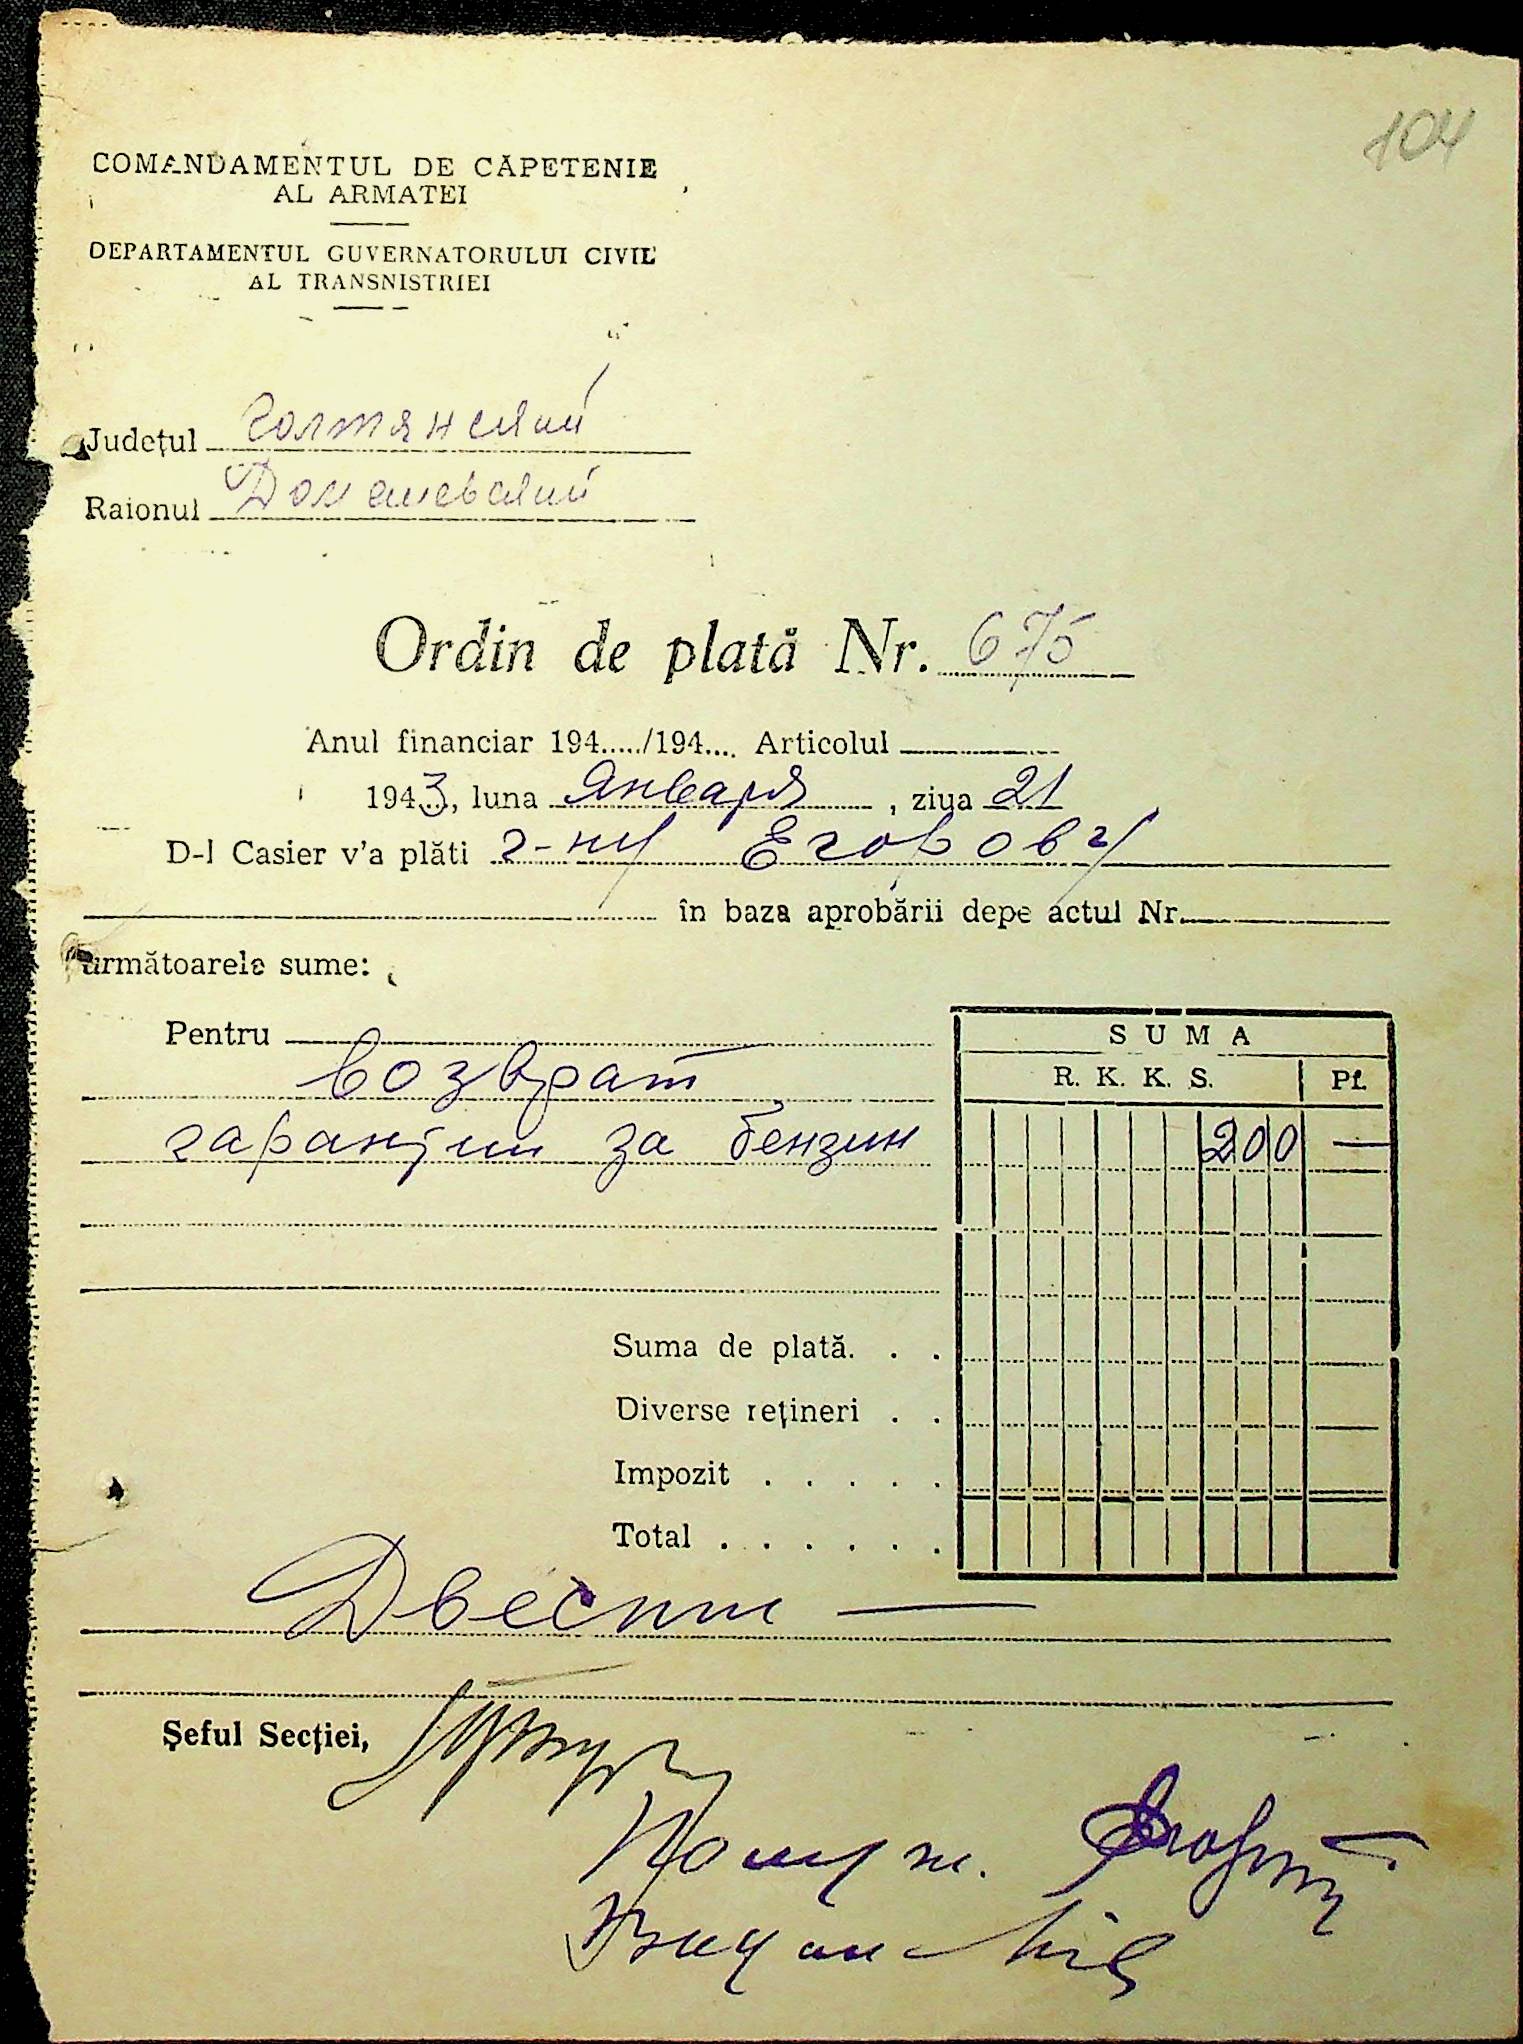 104
COMANDAMENTUL DE CĂPETENIE
AL ARMATEI
DEPARTAMENTUL GUVERNATORULUI CIVIL
AL TRANSNISTRIEI
Județul Голтянский
Raionul Доманевский
Ordin de plată Nr. 675
Anul financiar 194...../194.... Articolul
1943, luna Января, ziua 21
D-l Casier v'a plăti г-ну Егорову
în baza aprobării depe actul Nr.
următoarele sume:
Pentru
возврат
гаранции за бензин
SUMA
R. K. K. S. Pf.
200 —
Suma de plată. . .
Diverse rețineri . .
Impozit . . . . .
Total . . . . . .
Двести —
Șeful Secției,
Получ.